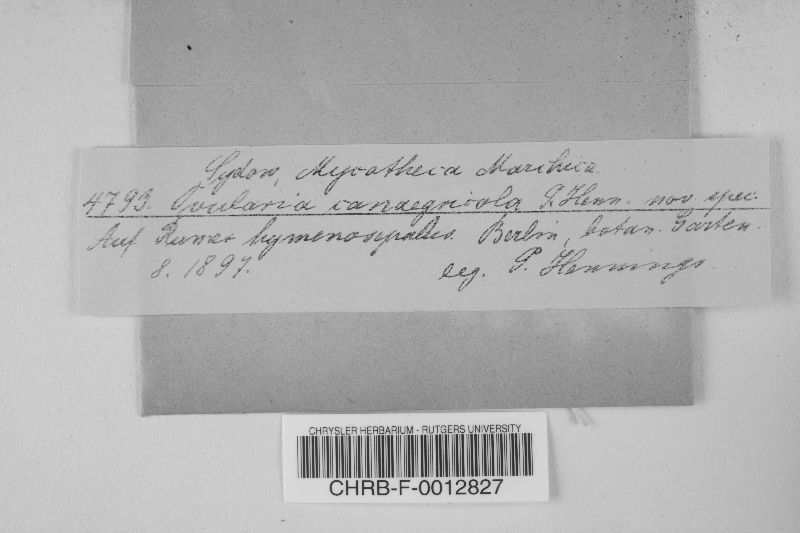 Sydow, Mycotheca Marchica
4793. Ovularia canaegricola P. Henn. nov. spec.
Auf Rumex hymenosepalus. Berlin, botan. Garten.
8. 1897. leg. P. Hennings.
CHRYSLER HERBARIUM - RUTGERS UNIVERSITY
CHRB-F-0012827